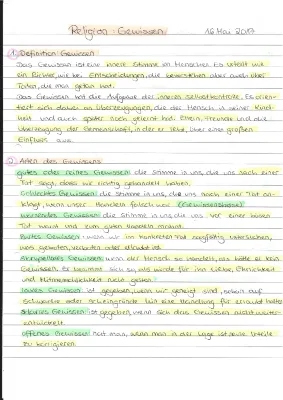 Religion: Gewissen 16 Mai 2017
1. Definition Gewissen
Das Gewissen ist eine innere Stimme im Menschen. Es urteilt wie
ein Richter, wie bei Entscheidungen, die bevorstehen aber auch über
Taten, die man getan hat.
Das Gewissen hat die Aufgabe der inneren Selbstkontrolle. Es orien-
tiert sich dabei an Überzeugungen, die der Mensch in seiner Kind-
heit und auch später noch gelernt hat. Eltern, Freunde und die
Überzeugung der Gemeinschaft, in der er lebt, üben einen großen
Einfluss aus.
2. Arten des Gewissens
gutes oder reines Gewissen: die Stimme in uns, die uns nach einer
Tat sagt, dass wir richtig gehandelt haben.
schlechtes Gewissen: die Stimme in uns, die uns nach einer Tat an-
klagt, wenn unser Handeln falsch war. (Gewissensbisse)
warnendes Gewissen: die Stimme in uns, die uns vor einer bösen
Tat warnt und zum guten Handeln mahnt.
zartes Gewissen: wenn wir im konkreten Fall sorgfältig untersuchen,
was geboten, verboten oder erlaubt ist.
skrupelloses Gewissen: wenn der Mensch so handelt, als hätte er kein
Gewissen. Er benimmt sich so, als würde für ihn Liebe, Ehrlichkeit
und Mitmenschlichkeit nicht gelten.
laxes Gewissen: ist gegeben, wenn wir geneigt sind, schon auf
schwache oder Scheingründe hin eine Handlung für erlaubt halten
Gewissen: ist gegeben, wenn sich das Gewissen nicht weiter-
entwickelt.
offenes Gewissen: hat man, wenn man in der Lage ist seine Urteile
zu korrigieren.